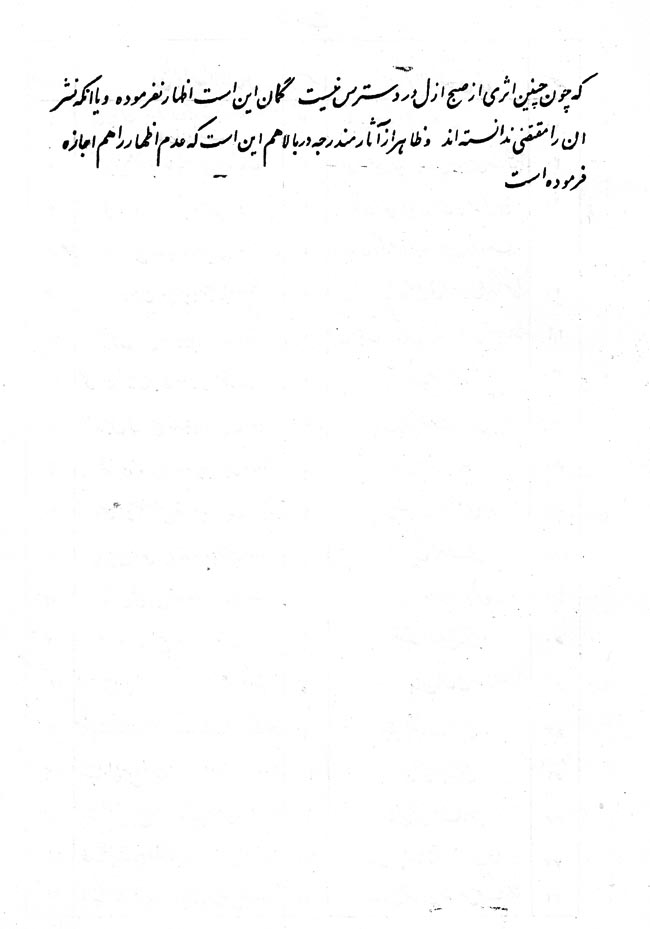 که چون چنین اثری از صبح ازل در دسترس نیست گمان این است اظهار نفرموده و یا انکه نشر
ان را مقتضی ندانسته اند و ظاهر از آثار مندرجه در بالا هم این است که عدم اظهار را هم اجازه
فرموده است